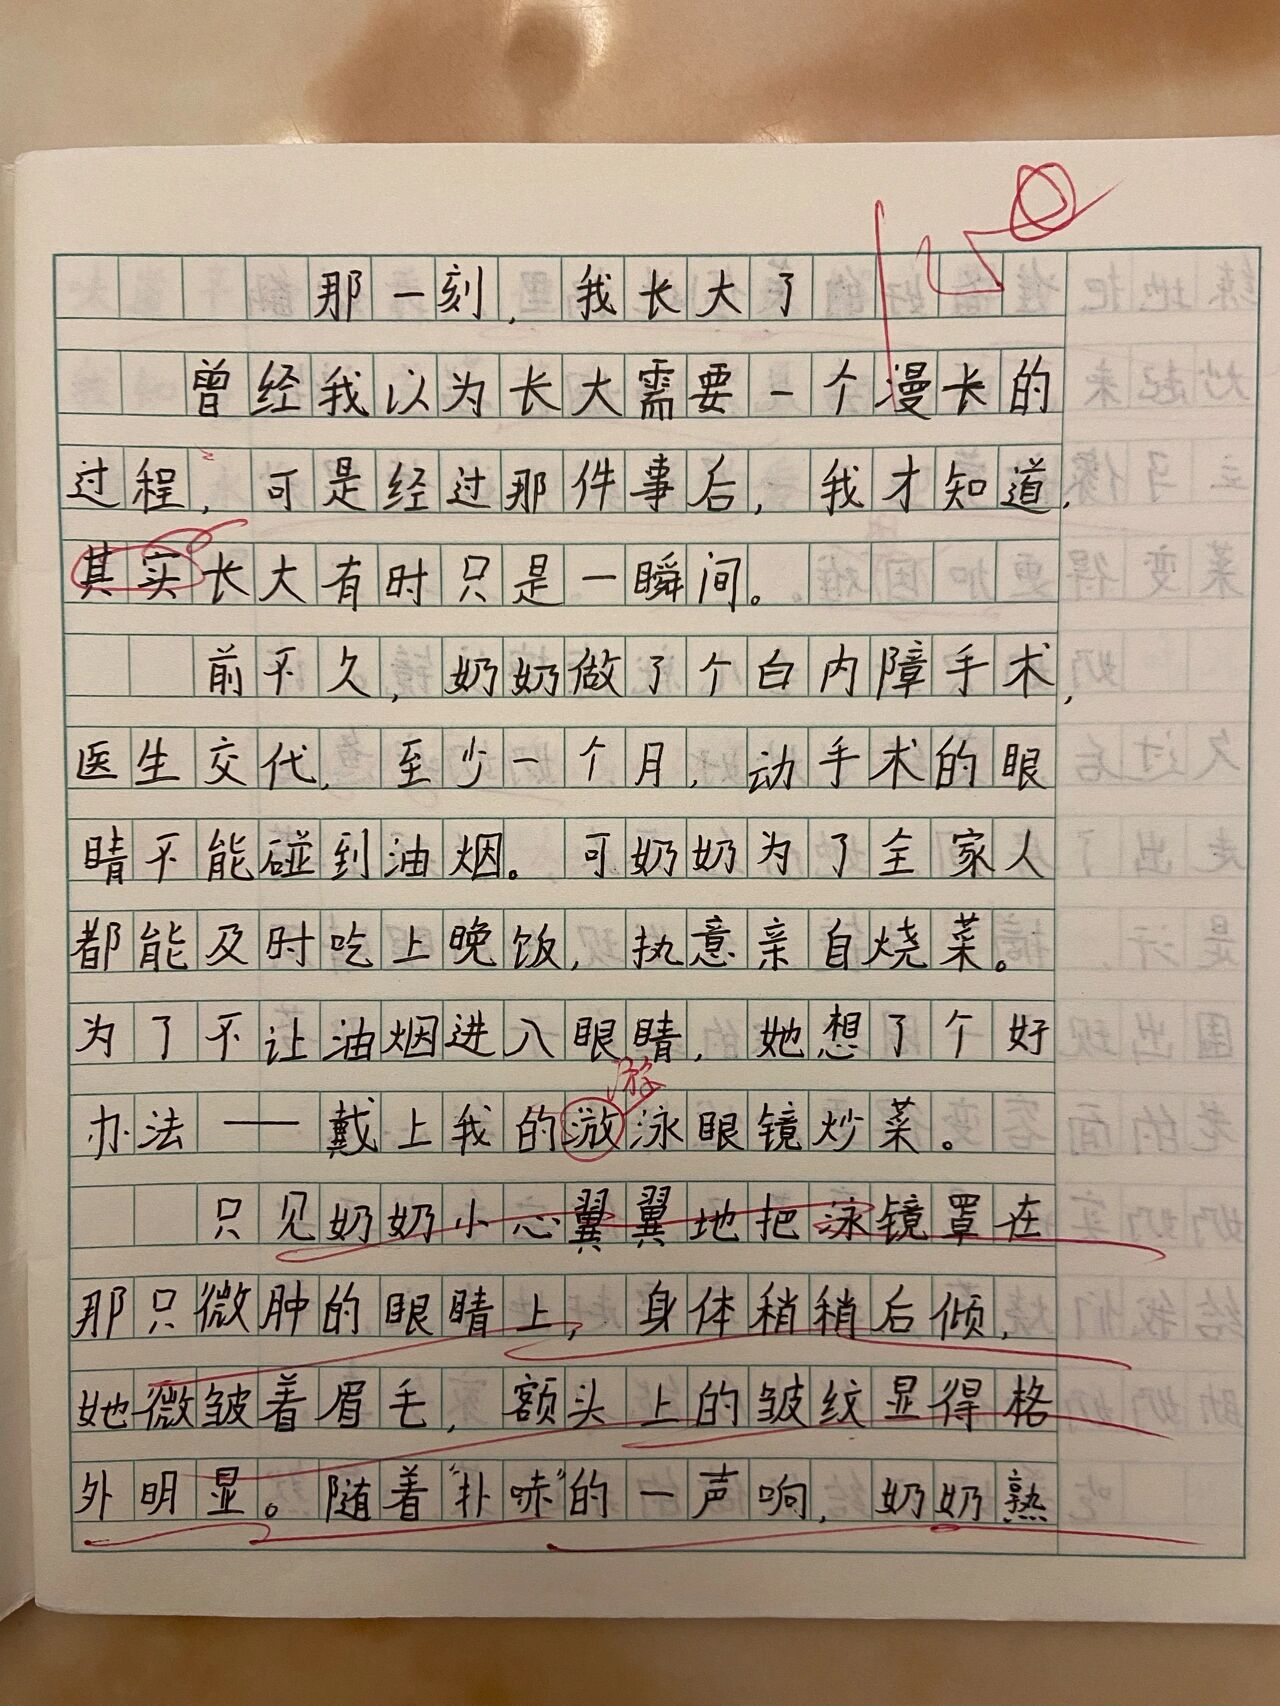 那一刻，我长大了
曾经我以为长大需要一个漫长的
过程，可是经过那件事后，我才知道，
其实长大有时只是一瞬间。
前不久，奶奶做了个白内障手术，
医生交代，至少一个月，动手术的眼
睛不能碰到油烟。可奶奶为了全家人
都能及时吃上晚饭，执意亲自烧菜。
为了不让油烟进入眼睛，她想了个好
游
办法——戴上我的泳眼镜炒菜。
只见奶奶小心翼翼地把泳镜罩在
那只微肿的眼睛上，身体稍稍后倾，
她微皱着眉毛，额头上的皱纹显得格
外明显。随着“扑哧”的一声响，奶奶熟